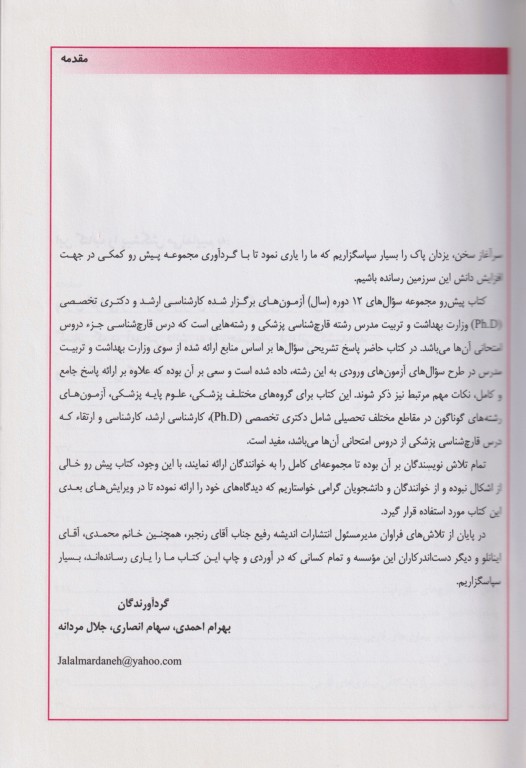 مقدمه
سرآغاز سخن، یزدان پاک را بسیار سپاسگزاریم که ما را یاری نمود تا با گردآوری مجموعه پیش رو کمکی در جهت
افزایش دانش این سرزمین رسانده باشیم.
کتاب پیش‌رو مجموعه سؤال‌های ۱۲ دوره (سال) آزمون‌های برگزار شده کارشناسی ارشد و دکتری تخصصی
(Ph.D) وزارت بهداشت و تربیت مدرس رشته قارچ‌شناسی پزشکی و رشته‌هایی است که درس قارچ‌شناسی جزء دروس
امتحانی آن‌ها می‌باشد. در کتاب حاضر پاسخ تشریحی سؤال‌ها بر اساس منابع ارائه شده از سوی وزارت بهداشت و تربیت
مدرس در طرح سؤال‌های آزمون‌های ورودی به این رشته، داده شده است و سعی بر آن بوده که علاوه بر ارائه پاسخ جامع
و کامل، نکات مهم مرتبط نیز ذکر شوند. این کتاب برای گروه‌های مختلف پزشکی، علوم پایه پزشکی، آزمون‌های
رشته‌های گوناگون در مقاطع مختلف تحصیلی شامل دکتری تخصصی (Ph.D)، کارشناسی ارشد، کارشناسی و ارتقاء که
درس قارچ‌شناسی پزشکی از دروس امتحانی آن‌ها می‌باشد، مفید است.
تمام تلاش نویسندگان بر آن بوده تا مجموعه‌ای کامل را به خوانندگان ارائه نمایند، با این وجود، کتاب پیش رو خالی
از اشکال نبوده و از خوانندگان و دانشجویان گرامی خواستاریم که دیدگاه‌های خود را ارائه نموده تا در ویرایش‌های بعدی
این کتاب مورد استفاده قرار گیرد.
در پایان از تلاش‌های فراوان مدیرمسئول انتشارات اندیشه رفیع جناب آقای رنجبر، همچنین خانم محمدی، آقای
اینانلو و دیگر دست‌اندرکاران این مؤسسه و تمام کسانی که در آوردی و چاپ این کتاب ما را یاری رسانده‌اند، بسیار
سپاسگزاریم.
گردآورندگان
بهرام احمدی، سهام انصاری، جلال مردانه
Jalalmardaneh@yahoo.com